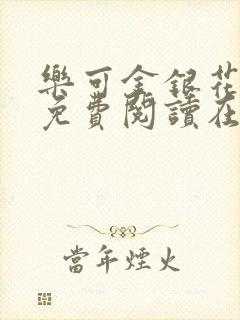 樂可金銀花
免費閱讀在
當年煙火